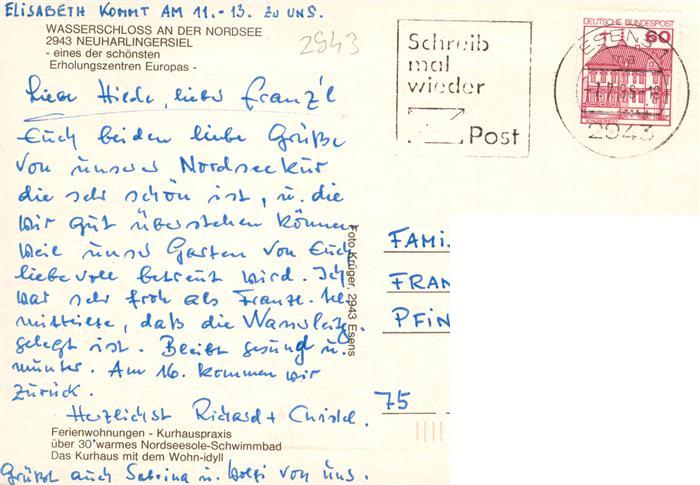 ELISABETH KOMMT AM 11.-13. ZU UNS.
WASSERSCHLOSS AN DER NORDSEE
2943 NEUHARLINGERSIEL
- eines der schönsten
Erholungszentren Europas -
2943
Schreib
mal
wieder
Post
DEUTSCHE BUNDESPOST
60
ESENS
2943
Liebe Hilde, lieber Franz'l
Euch beiden liebe Grüße
von unserer Nordseekur
die sehr schön ist, u. die
wir gut überstehen können
weil unser Garten von Euch
liebevoll betreut wird. Ich
war sehr froh als Franze. tel.
mitteilte, daß die Wasserleitg.
gelegt ist. Bleibt gesund u.
munter. Am 16. kommen wir
zurück.
Herzlichst Richard + Christel.
Foto Krüger, 2943 Esens
FAMI
FRAN
PFIN
75
Ferienwohnungen - Kurhauspraxis
über 30° warmes Nordseesole-Schwimmbad
Das Kurhaus mit dem Wohn-idyll
Grüßt auch Sabrina u. von uns.